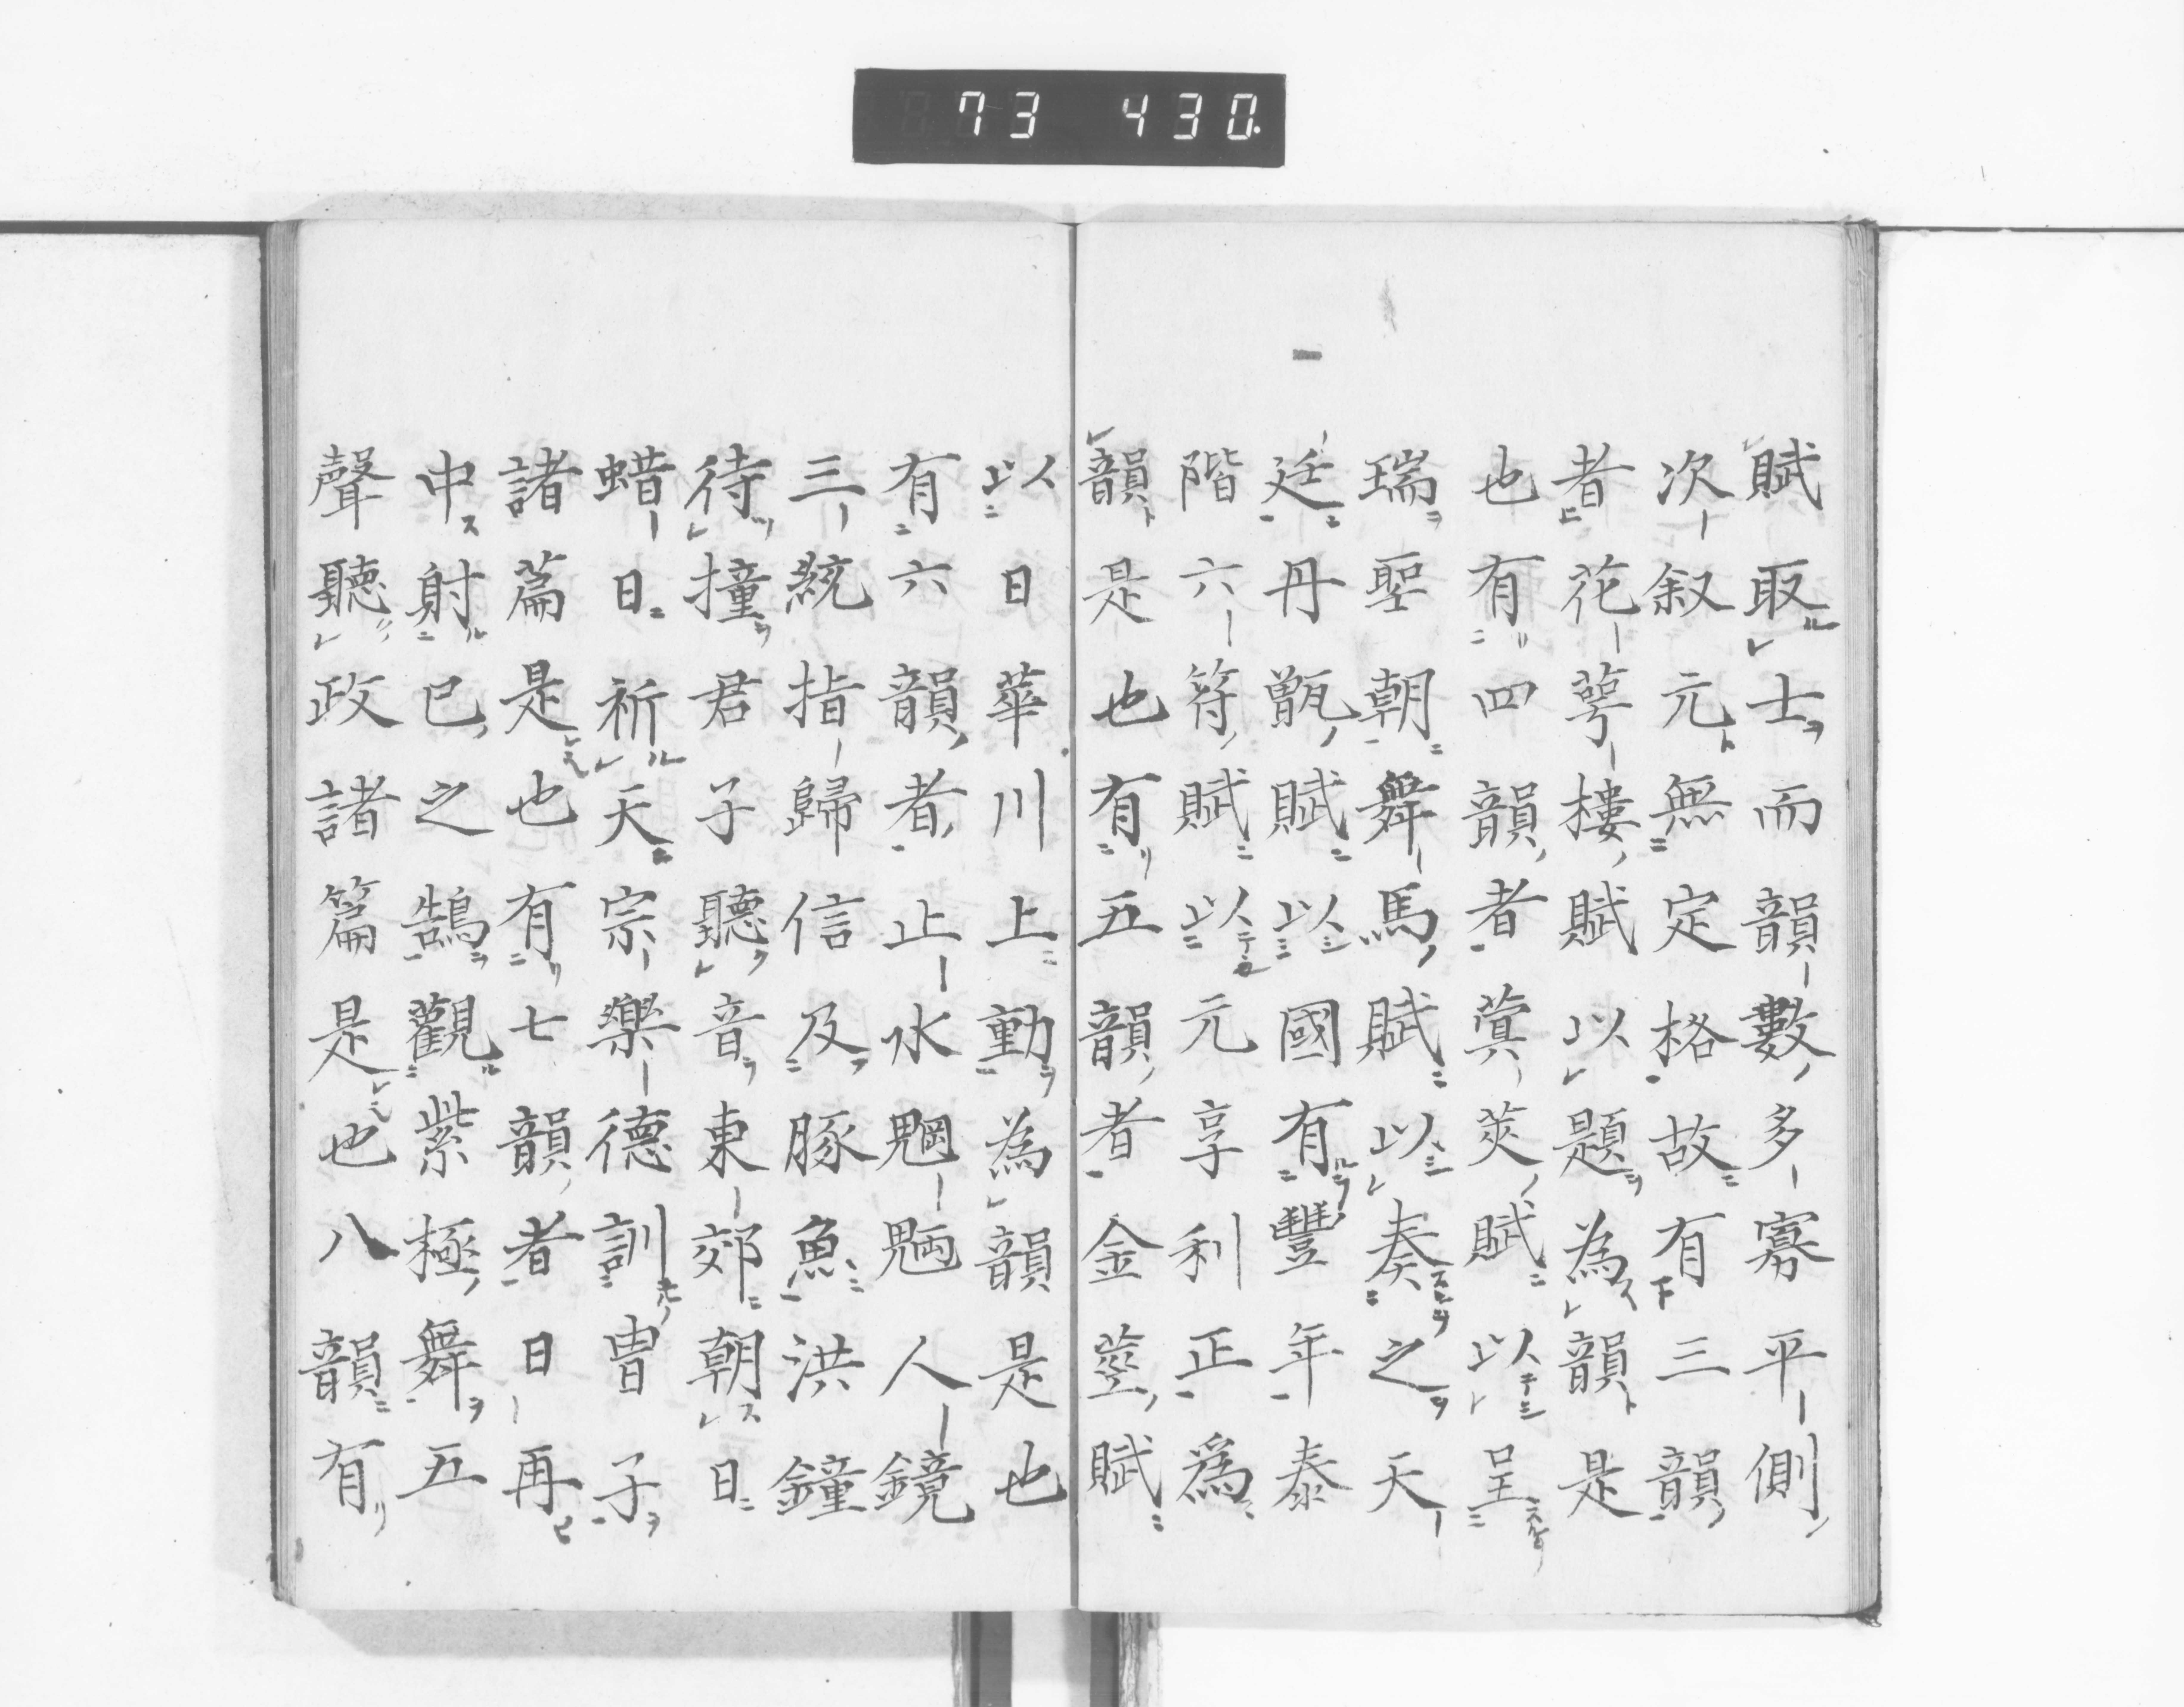 73 430.
賦取士而韻數多寡平側
次叙元無定格故有三韻
者花萼樓賦以題為韻是
也有四韻者蓂莢賦以呈
瑞聖朝舞馬賦以奏之天
廷丹甑賦以國有豐年泰
階六符賦以元享利正爲
韻是也有五韻者金莖賦
以日華川上動為韻是也
有六韻者止水魍魎人鏡
三統指歸信及豚魚洪鐘
待撞君子聽音東郊朝日
蜡日祈天宗樂德訓胄子
諸篇是也有七韻者日再
中射巳之鵠觀紫極舞五
聲聽政諸篇是也八韻有